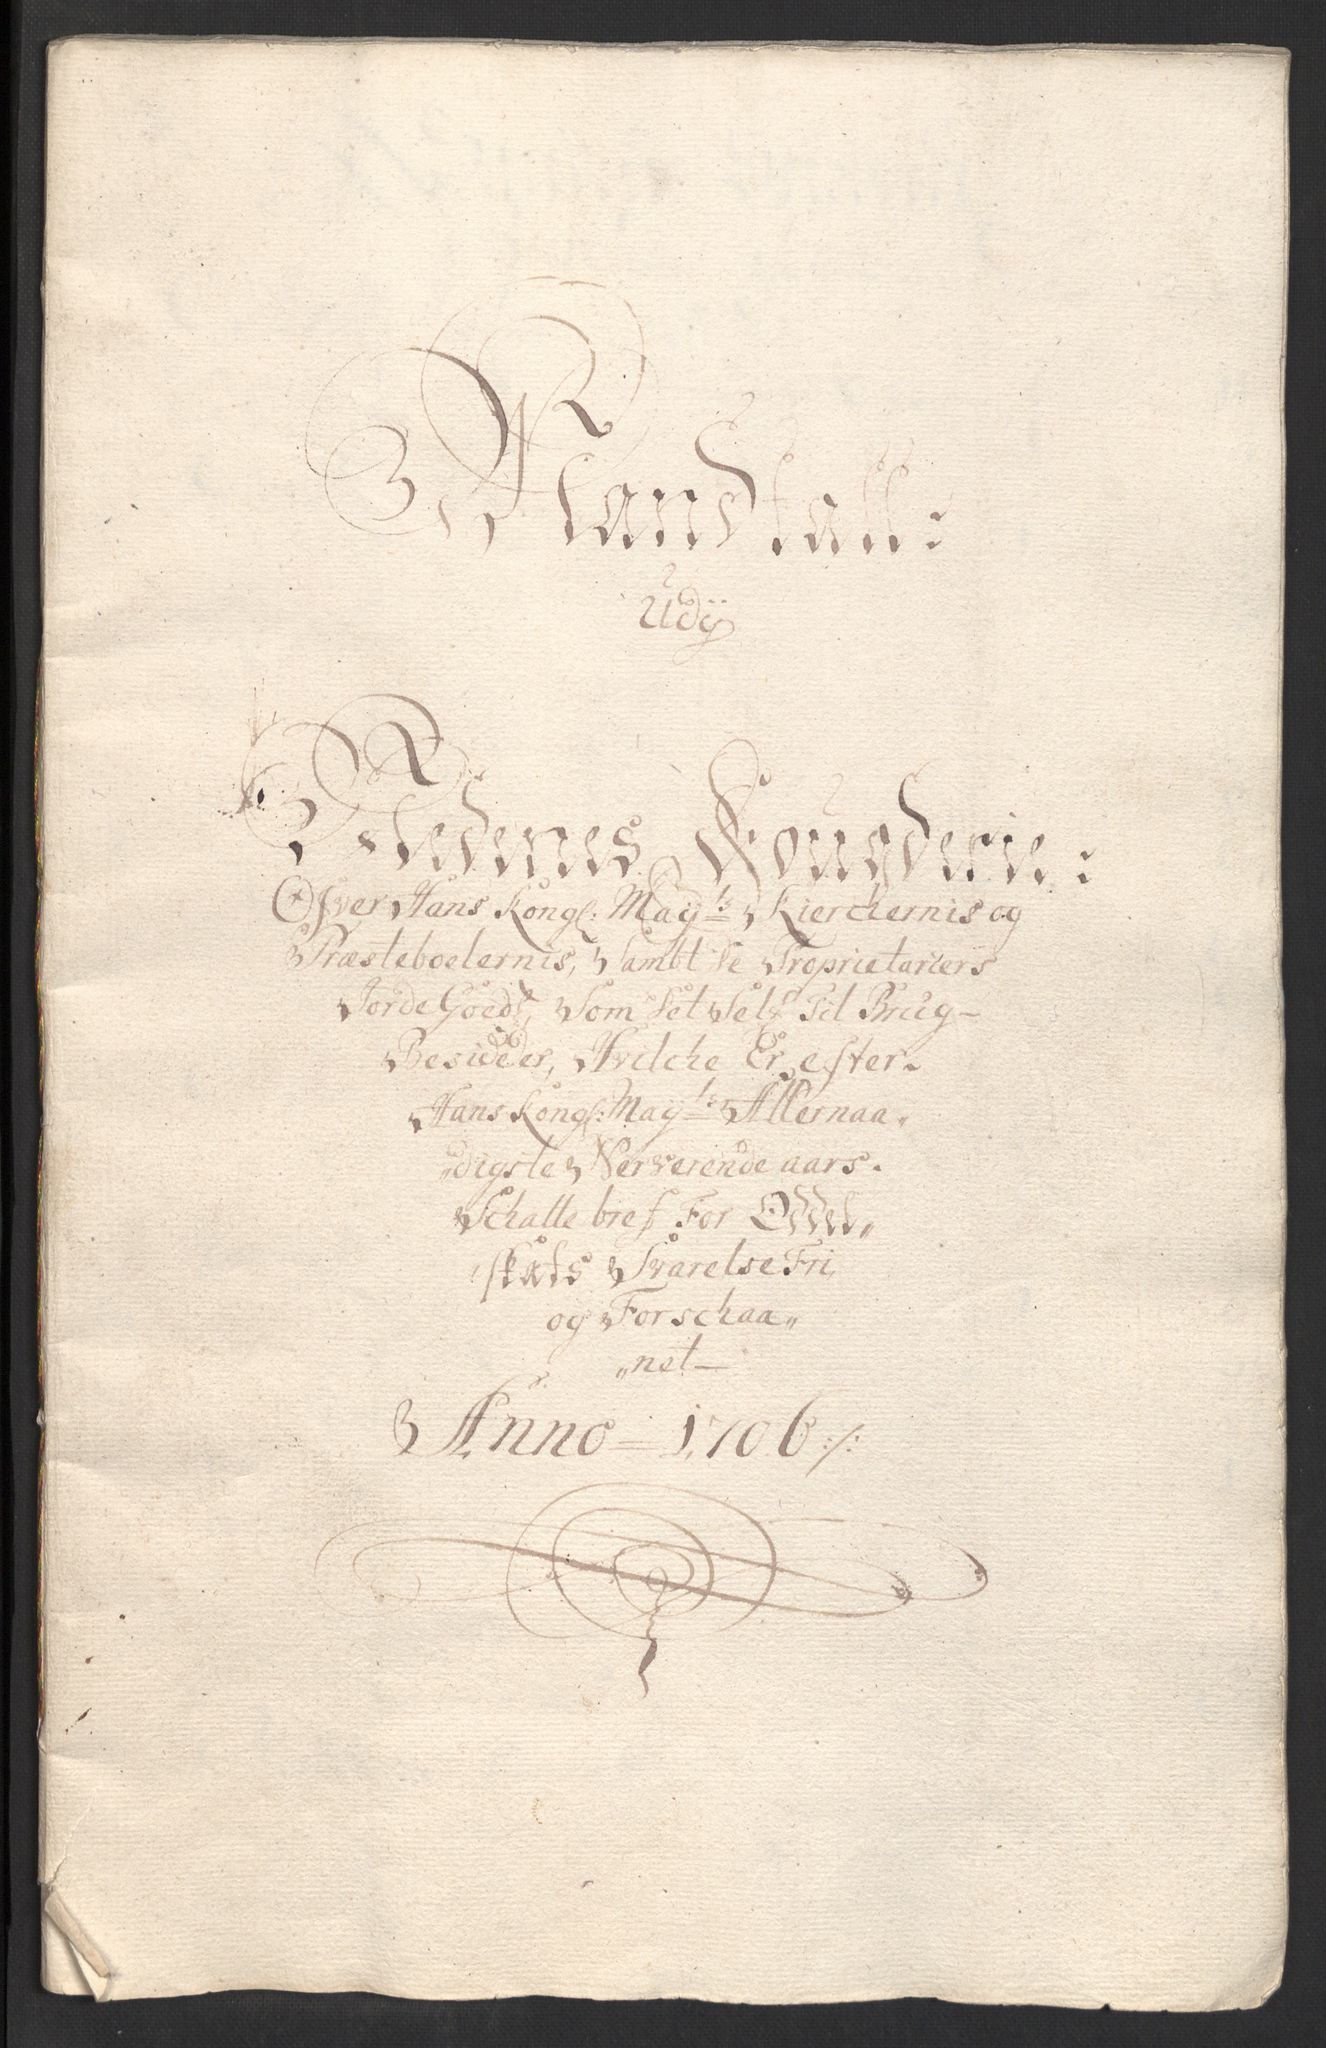 Mandtall:
udÿ
Nedenes Fougderie:
Ofver Hans Kongl: Maÿts Kierchernis og
Præsteboelernis, Sambt de Proprietariers
Jorde Goeds, Som det Self til Brug
Besidder, Hvilche Er efter
Hans Kongl: Maÿts Allernaa„
„digste Nerverende aars
Schatte bref For Odel„
„skats Svarelse Fri
og Forschaa„
„net
Anno 1706 ./.